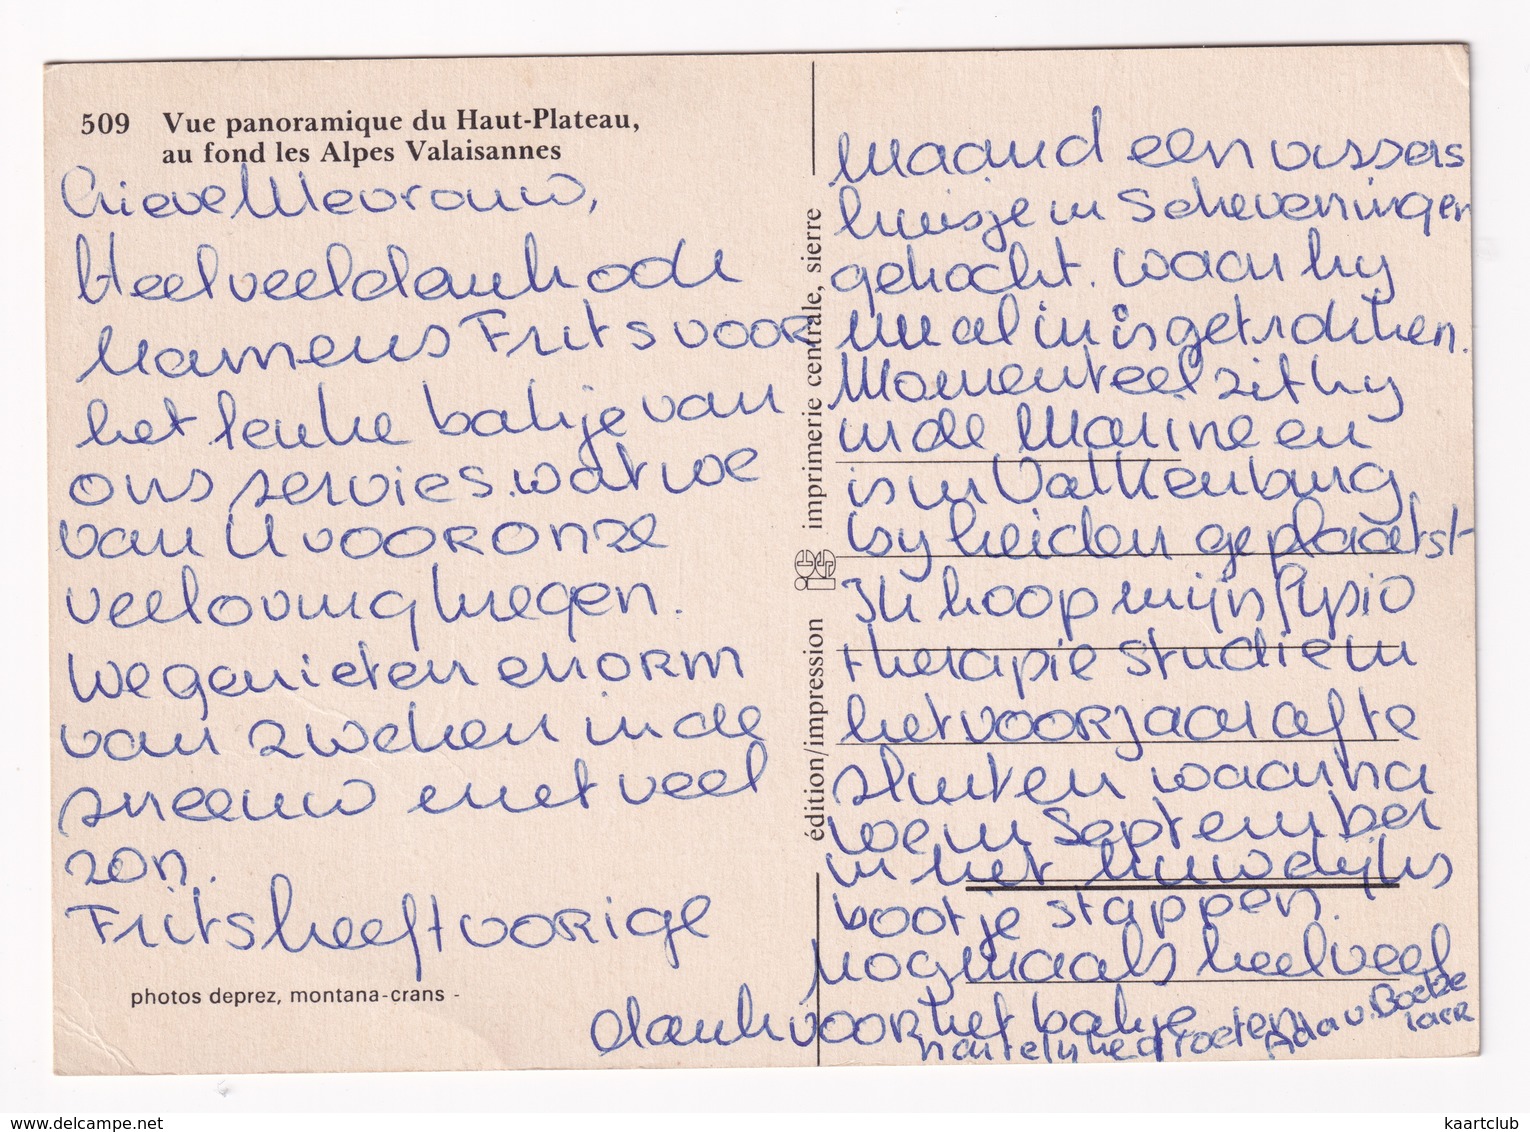 509 Vue panoramique du Haut-Plateau,
au fond les Alpes Valaisannes
Lieve Mevrouw,
Heel veel dank ook
namens Frits voor
het leuke bakje van
ons servies. wat we
van U voor onze
verloving kregen.
We genieten enorm
van zwcken in de
sneeuw met veel
zon.
Frits heeft vorige
photos deprez, montana-crans -
édition/impression imprimerie centrale, sierre
maand een vissers
huisje in Scheveningen
gekocht. waar hy
nu al in is getrokken.
Momenteel zit hy
in de Marine en
is in Valkenburg
by Leiden geplaatst
Ik hoop mijn fysio
therapie studie in
het voorjaar af te
sluiten waarna
we in September
in het huwelijks
bootje stappen.
Nogmaals heel veel
dank voor het bakje en
hartelyke groeten Ada v.